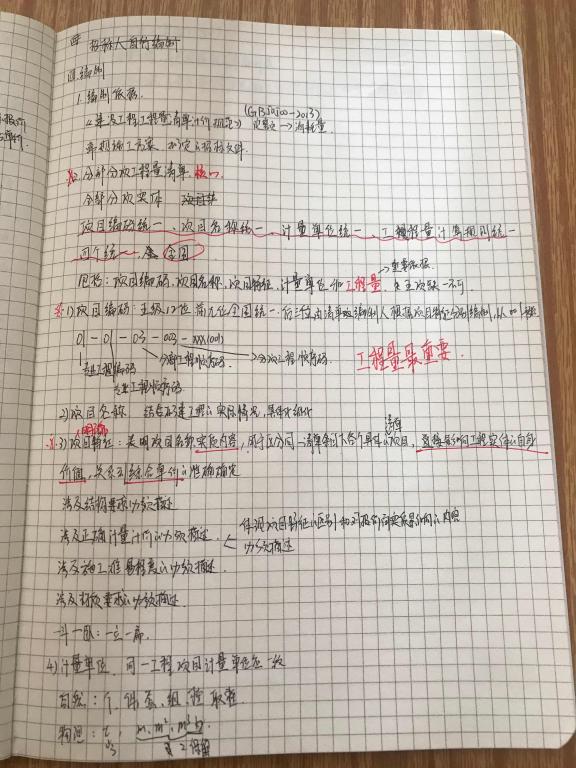 招标人自行编制
编制
1. 编制依据.
《建设工程工程量清单计价规范》(GB50500-2013)
→消耗量
常规施工方案 拟定的招标文件
2. 分部分项工程量清单. 核心
全部分项实体 项目
项目编码统一、项目名称统一、计量单位统一、工程量计算规则统一
四个统一 全国
包括:项目编码,项目名称,项目特征,计量单位和工程量. 缺一不可
重要依据
1)项目编码:五级12位 前九位全国统一.后三位由清单编制人根据项目特征分别编制,从001起
01-01-03-003-xxx(001)
专业工程编码 分部工程顺序码 分项工程顺序码.
专业工程顺序码
工程量最重要
2)项目名称 结合拟建工程的实际情况,具体化细化
3)项目特征:表明项目名称实质内容,用于区分同一清单条目下各个具体的项目,直接影响工程实体的自身
清单
价值,关系到综合单价的准确确定
涉及结构要求的必须描述
涉及正确计量计价的必须描述.
必须描述
涉及施工难易程度的必须描述.
涉及材质要求的必须描述.
4)计量单位. 同一工程项目计量单位应一致
自然:个、件、套、组、 取整
物理:t, m、m²、m³
3 2位